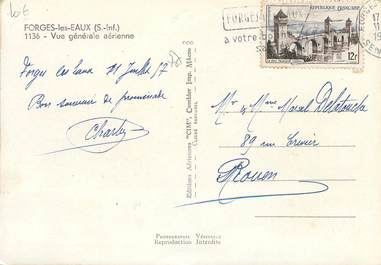 10€
FORGES-les-EAUX (S.-Inf.)
1136 - Vue générale aérienne
FORGES
à votre
RÉPUBLIQUE FRANÇAISE
12F
Forges les Eaux 21 Juillet 57
Bon souvenir de promenade
Charly
Editions Aériennes "CIM", Combier Imp. Mâcon
Mr & Mme Marcel Delatouche
89 rue
Rouen
PHOTOGRAPHIE VÉRITABLE
Reproduction Interdite